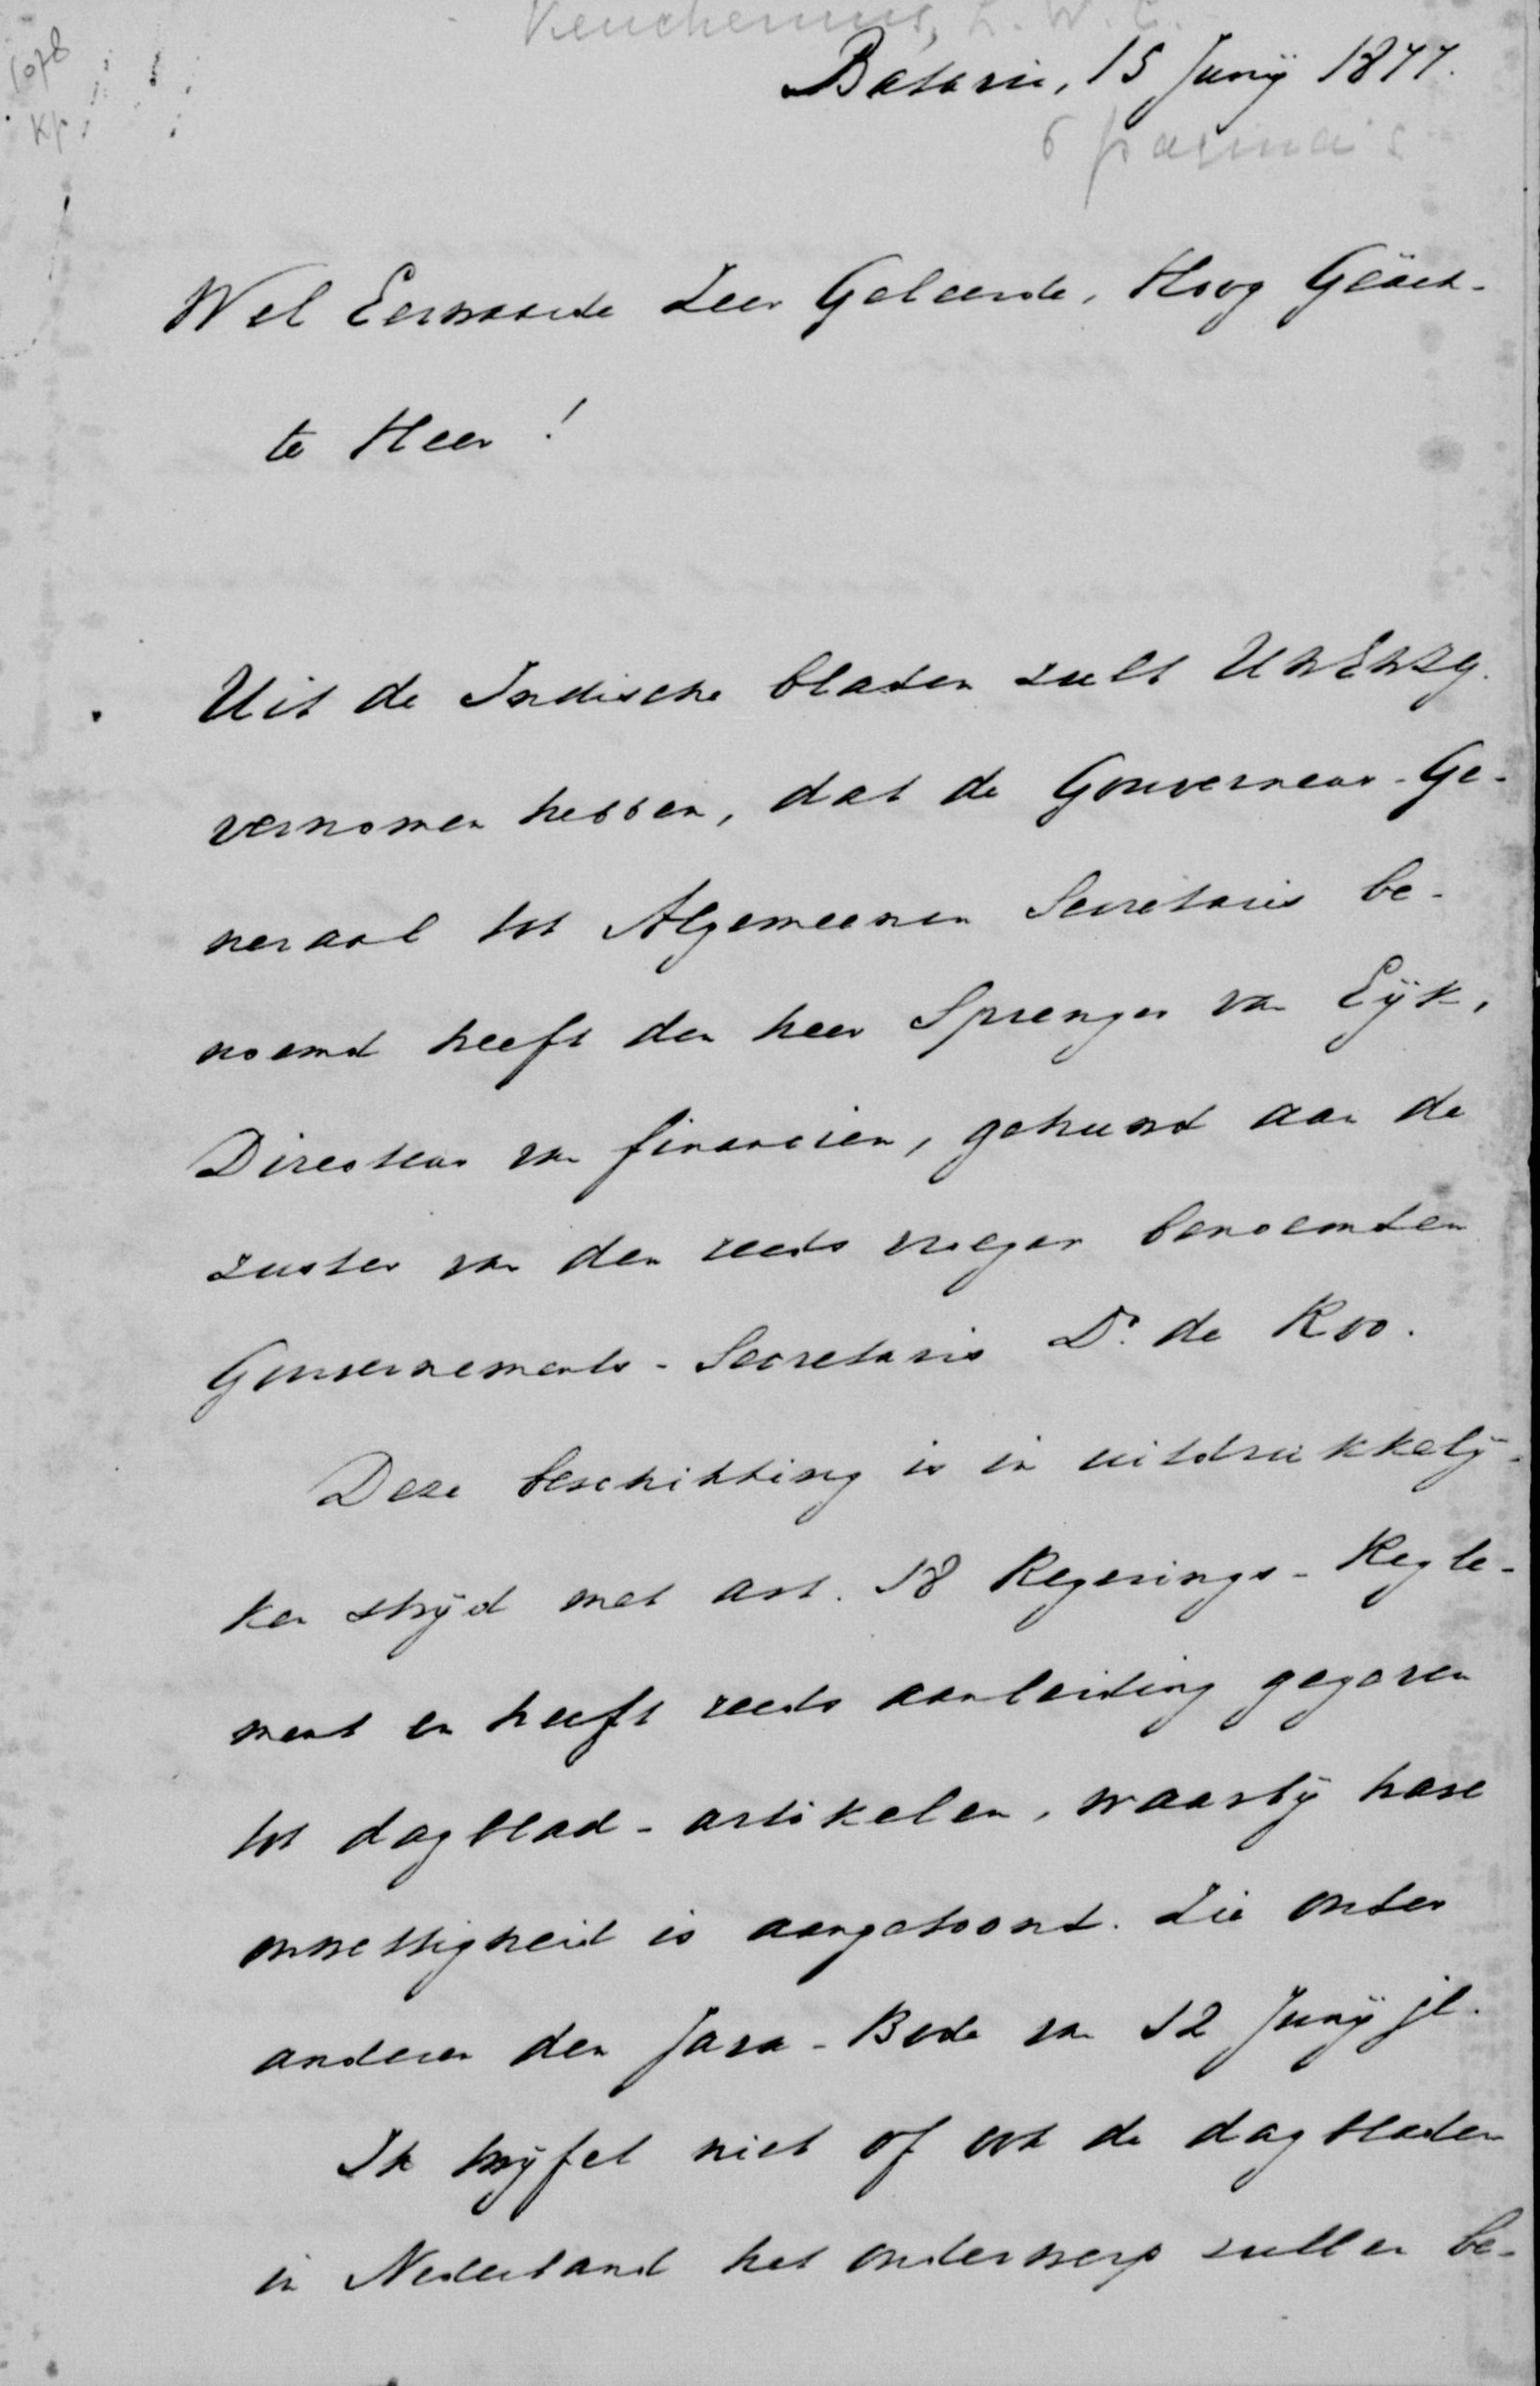 Keuchenius, L. W. C.
1078
Kp.
Batavia, 15 Junij 1877.
6 pagina's
Wel Eerwaarde Zeer Geleerde, Hoog Geäch-
te Heer!
Uit de Indische bladen zult UWEWZg.
vernomen hebben, dat de Gouverneur-Ge-
neraal tot Algemeenen Secretaris be-
noemd heeft den heer Sprenger van Eijk,
Directeur van financien, gehuwd aan de
zuster van den reeds vroeger benoemden
Gouvernements-Secretaris Dr. de Roo.
Deze beschikking is in uitdrukkelij-
ken strijd met art. 18 Regerings-Regle-
ment en heeft reeds aanleiding gegeven
tot dagblad-artikelen, waarbij hare
onwettigheid is aangetoond. Zie onder
anderen den Java-Bode van 12 Junij jl.
Ik twijfel niet of ook de dagbladen
in Nederland het onderwerp zullen be-